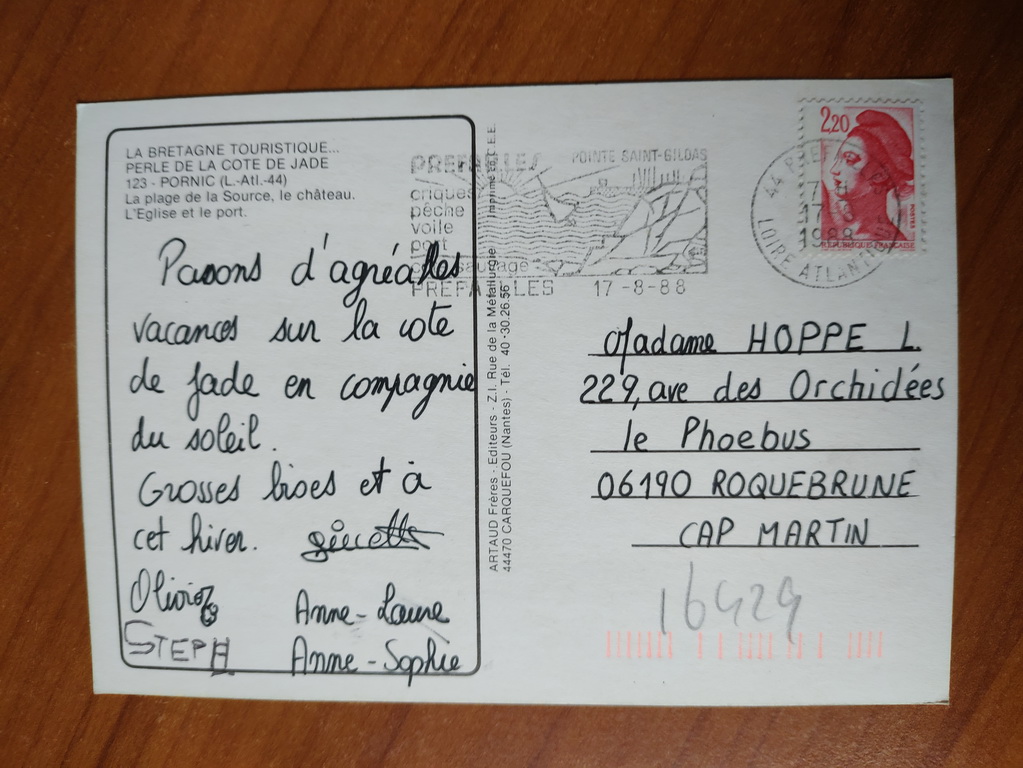 LA BRETAGNE TOURISTIQUE...
PERLE DE LA COTE DE JADE
123 - PORNIC (L.-Atl.-44)
La plage de la Source, le château.
L'Eglise et le port.
Passons d'agréables
vacances sur la cote
de jade en compagnie
du soleil.
Grosses bises et à
cet hiver.
Olivier
Anne-Laure
STEPH
Anne-Sophie
ARTAUD Frères - Editeurs - Z.I. Rue de la Métallurgie Imprimé en C.E.E.
44470 CARQUEFOU (Nantes) - Tél. 40.30.26.56
PREFAILLES POINTE SAINT-GILDAS
criques
pêche
voile
port
sauvage
PREFAILLES 17-8-88
2,20
POSTES
REPUBLIQUE FRANCAISE
44 PREFAILLES
17
1988
LOIRE ATLANTIQUE
Madame HOPPE L.
229, ave des Orchidées
le Phoebus
06190 ROQUEBRUNE
CAP MARTIN
16429